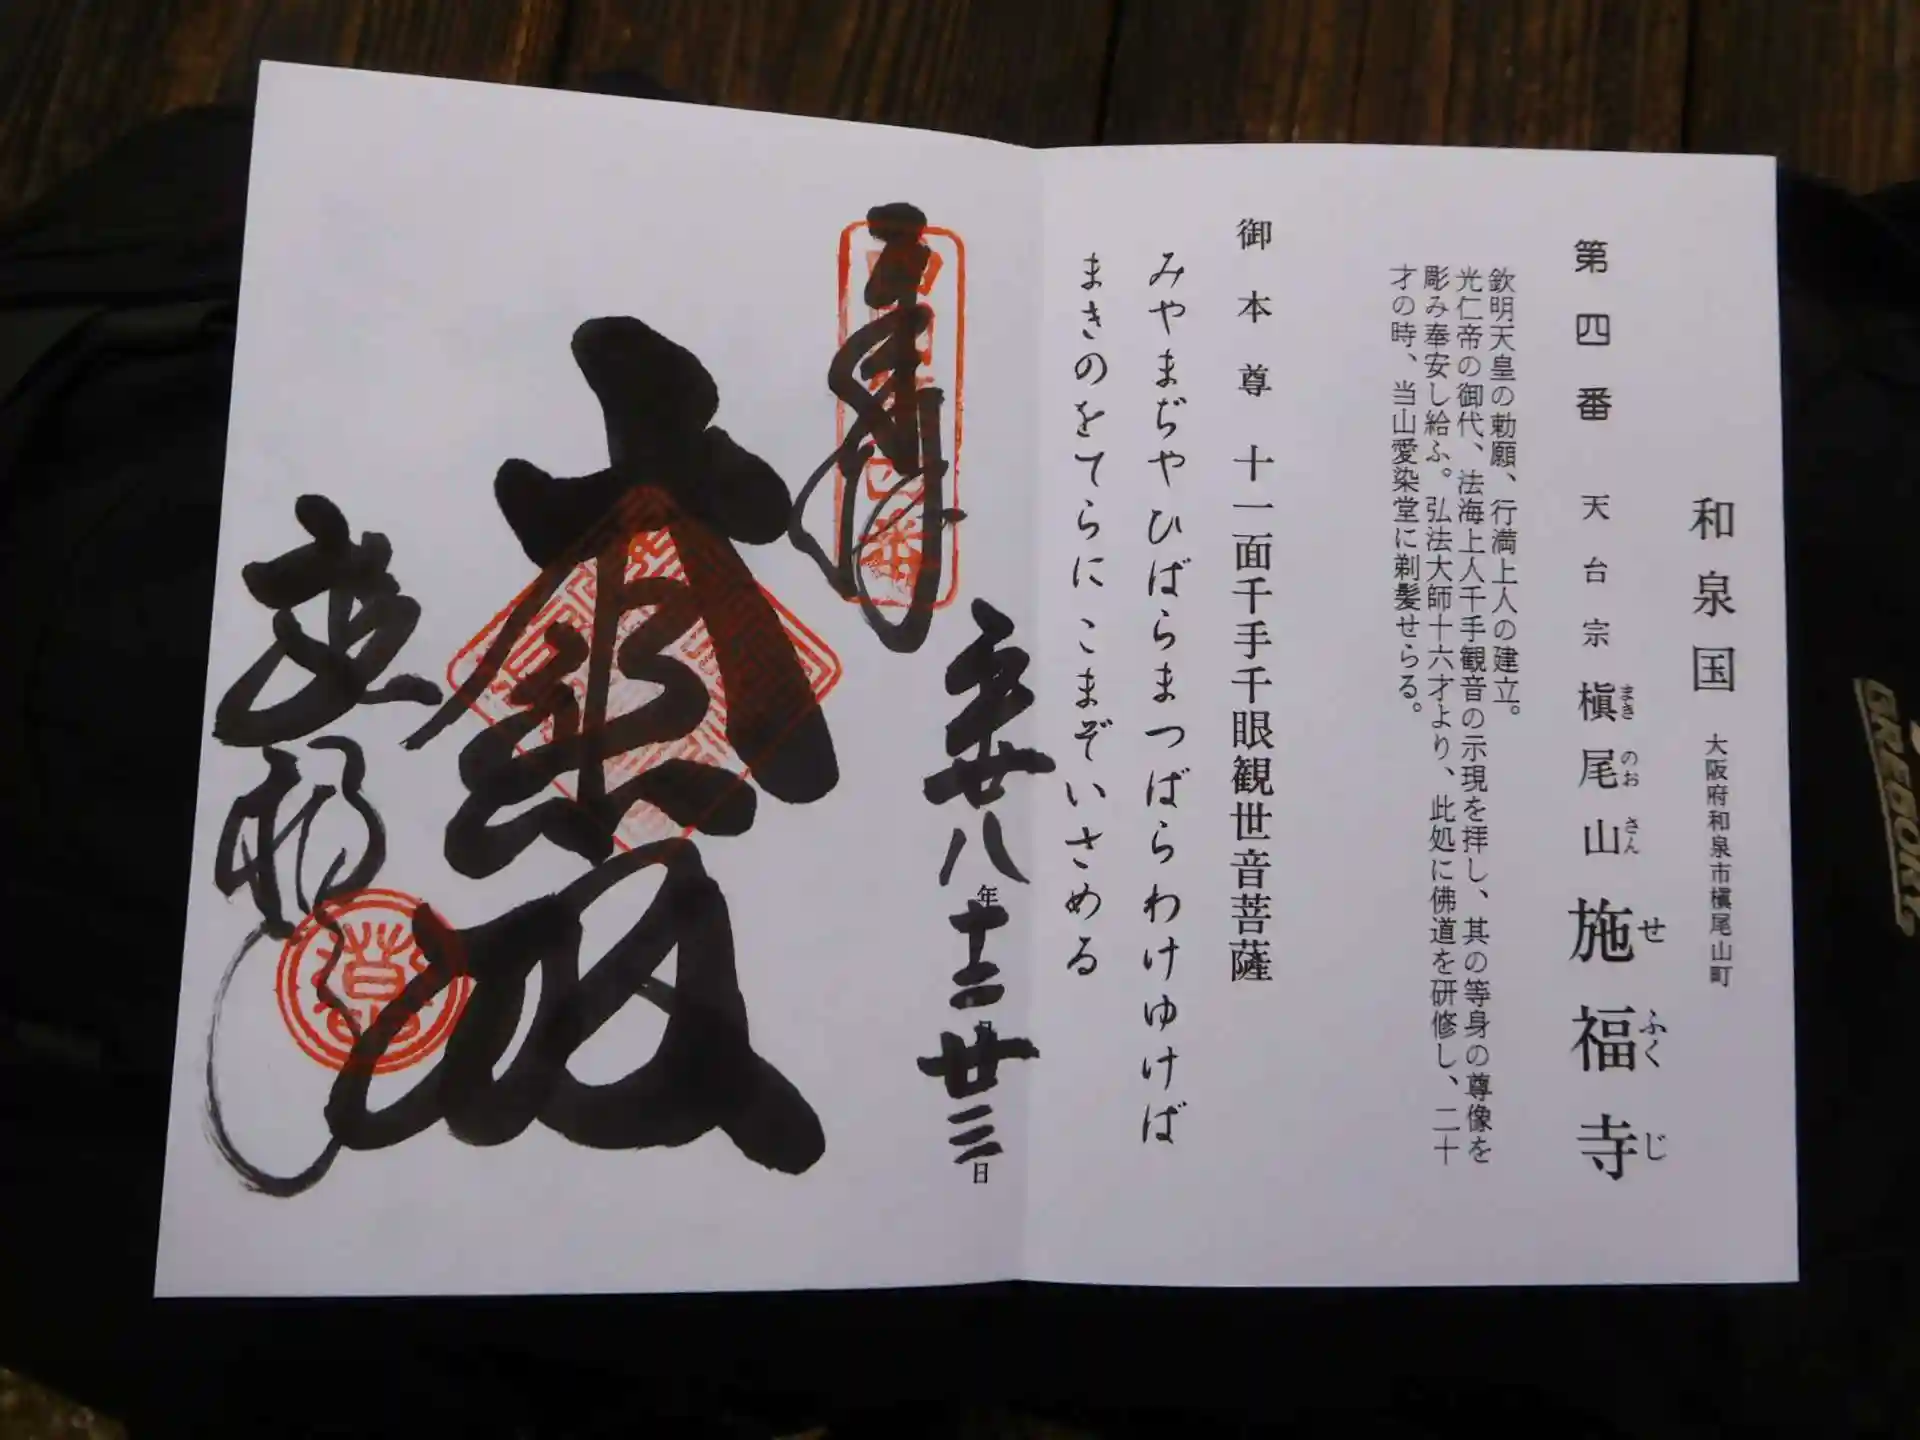 和泉国 大阪府和泉市槇尾山町
第四番 天台宗 槇尾山 施福寺
まき のお さん せ ふく じ
欽明天皇の勅願、行満上人の建立。
光仁帝の御代、法海上人千手観音の示現を拝し、其の等身の尊像を
彫み奉安し給ふ。弘法大師十六才より、此処に佛道を研修し、二十
才の時、当山愛染堂に剃髪せらる。
御本尊 十一面千手千眼観世音菩薩
みやまぢやひばらまつばらわけゆけば
まきのをてらにこままぞいさめる
奉拝
平成廿八年十二月廿三日
大悲殿
施福寺